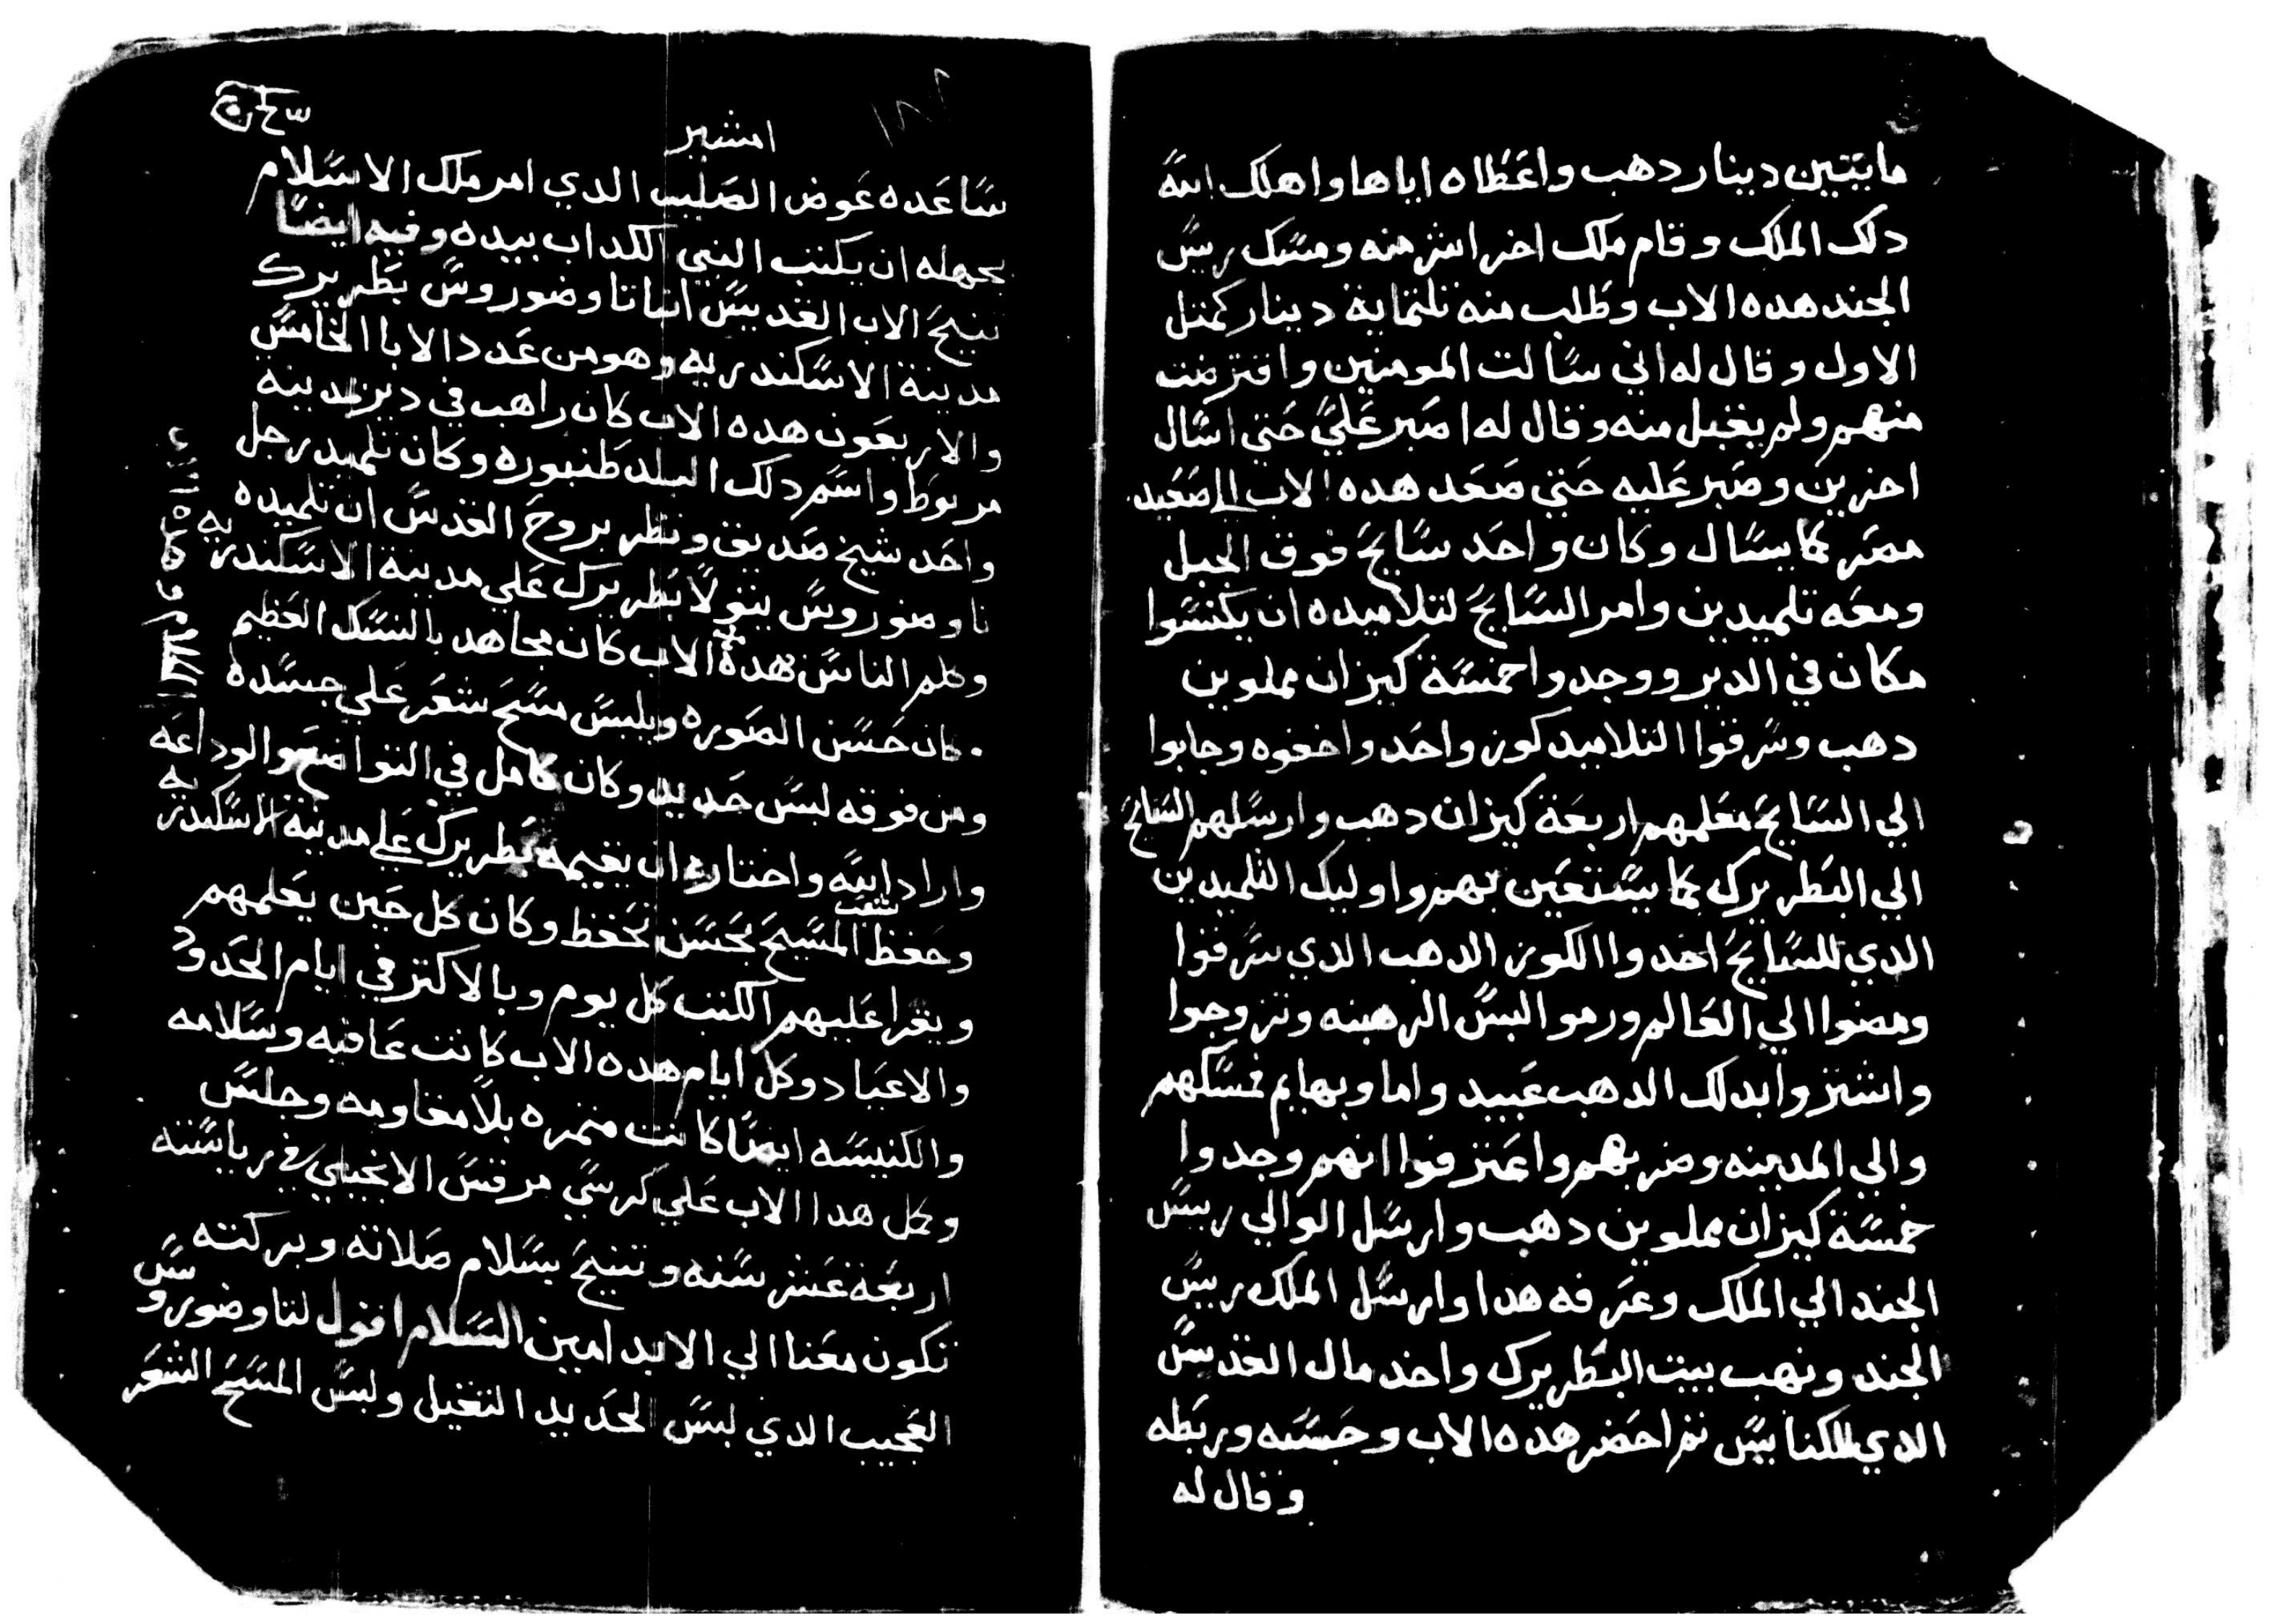 مايتين دينار دهب واعطاه اياها واهلك الله
دلك الملك وقام ملك اخر اشر منه ومسك ريس
الجند هده الاب وطلب منه تلتماية دينار كمتل
الاول وقال له اني سالت المومنين واقترضت
منهم ولم يقبل منه وقال له اصبر علي حتي اسال
اخرين وصبر عليه حتي صعد هده الاب الي صعيد
مصر كما يسال وكان واحد سايح فوق الجبل
ومعه تلميدين وامر السايح لتلاميده ان يكنسوا
مكان في الدير ووجدوا خمسة كيزان مملوين
دهب وسرقوا التلاميد كوز واحد واخفوه وجابوا
الي السايح معلمهم اربعة كيزان دهب وارسلهم السايح
الي البطريرك كما يستعين بهم واوليك التلميدين
الدي للسايح اخدوا الكوز الدهب الدي سرقوا
ومضوا الي العالم ورموا لبس الرهبنه وتزوجوا
واشتروا بدلك الدهب عبيد واما وبهايم فمسكهم
والي المدينه وضربهم واعترفوا انهم وجدوا
خمسة كيزان مملوين دهب وارسل الوالي ريس
الجند الي الملك وعرفه هدا وارسل الملك ريس
الجند ونهب بيت البطريرك واخد مال القدس
الدي للكنايس تم احضر هده الاب وحبسه وربطه
وقال له
امشير
ساعده عوض الصليب الدي امر ملك الاسلام
بجهله ان يكتب النبي الكداب بيده وفيه ايضا
تنيح الاب القديس انبا تاوضوروس بطريرك
مدينة الاسكندريه وهو من عدد الابا الخامس
والاربعون هده الاب كان راهب في دير مدينه
مربوط واسم دلك البلد طنبوره وكان تلميد رجل
واحد شيخ صديق ونظر بروح القدس ان تلميده
تاوضوروس يتولا بطريرك علي مدينة الاسكندريه
وكلم الناس هده الاب كان مجاهد بالنسك العظيم
وكان حسن الصوره ويلبس مسح شعر علي جسده
ومن فوقه لبس حديد وكان كامل في التواضع والوداعه
واراد الله واختاره ان يقيمه بطريرك علي مدينة الاسكندريه
وحفظ شعب المسيح بحسن تحفظ وكان كل حين يعلمهم
ويقرا عليهم الكتب كل يوم وبالاكتر في ايام الحدود
والاعياد وكل ايام هده الاب كانت عافيه وسلامه
والكنيسه ايضا كانت متمره بلا مقاومه وجلس
وكمل هدا الاب علي كرسي مرقس الانجيلي في رياسته
اربعة عشر سنه وتنيح بسلام صلاته وبركته
تكون معنا الي الابد امين السلام اقول لتاوضوروس
العجيب الدي لبس الحديد التقيل ولبس المسح الشعر